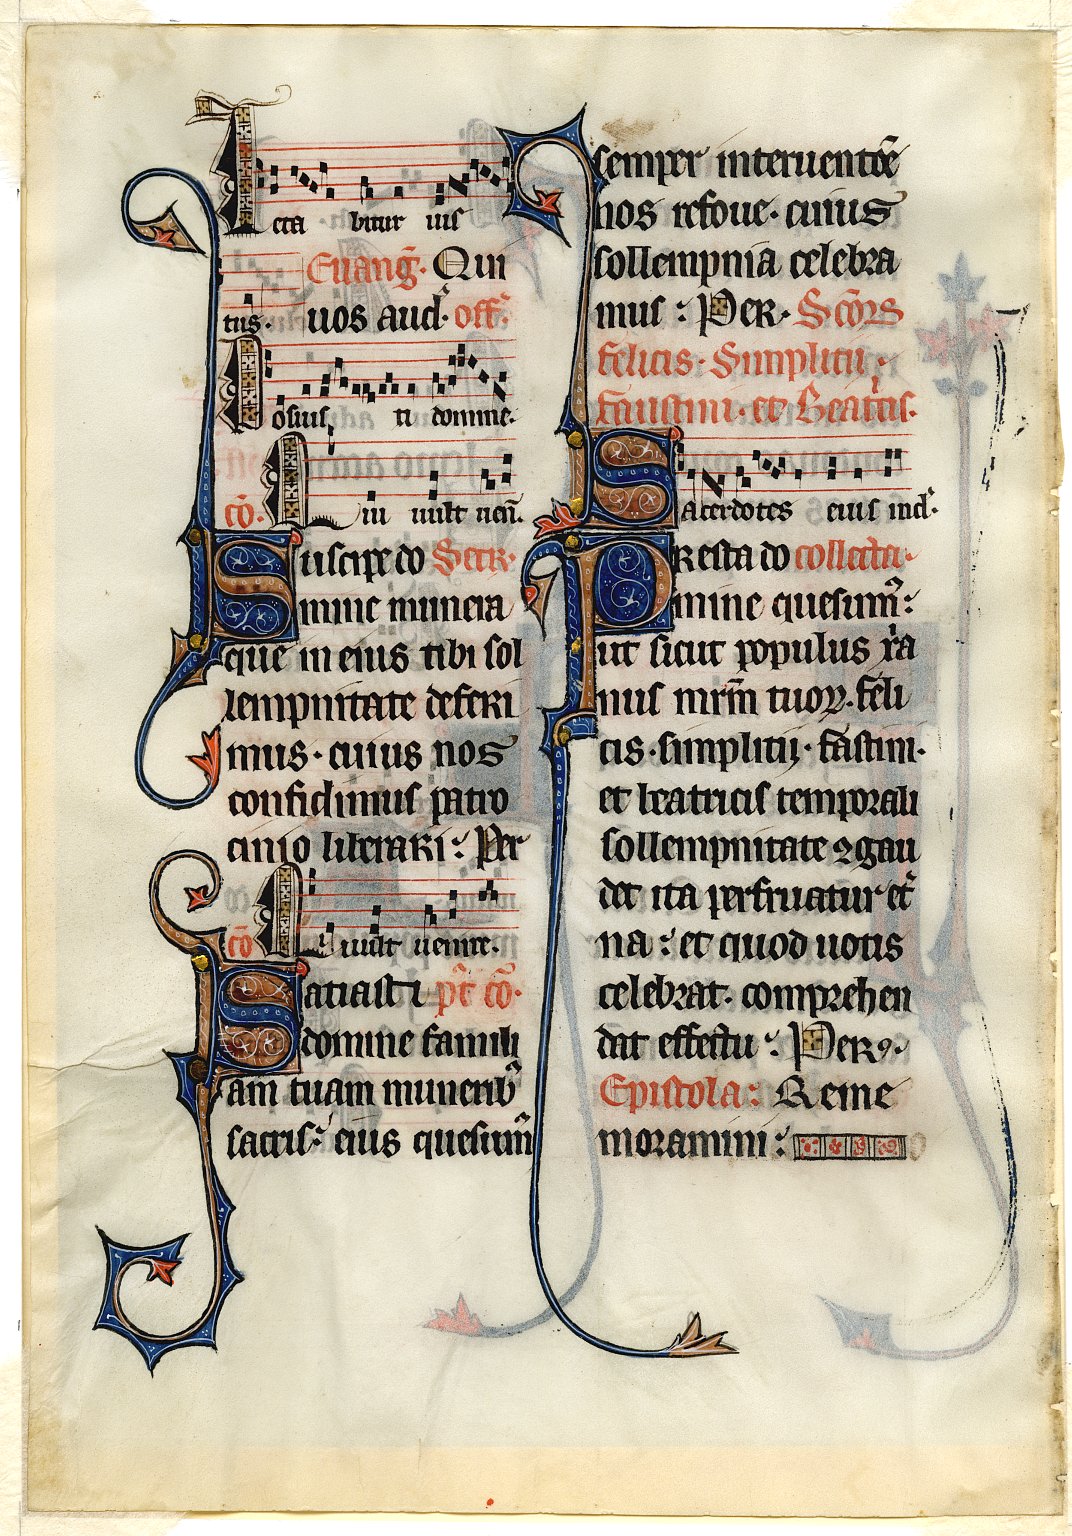 Leta bitur ius
Euang̃. Qui
tus. uos aud̾. off̾.
Posuis ti domine.
cō. Qui uult uen̄.
Suscipe do Secr̾.
mine munera
que in eius tibi sol
lempnitate deferi
mus. cuius nos
confidimus patro
cinio liberari: Per
cō Qui uult uenire.
Satiasti p̾t cō.
domine famili
am tuam munerib᾿
sacris: eius quesum̄
semper interuentōe
nos refoue. cuius
sollempnia celebra
mus: Per. S. cōꝝ
felicis. Simplicii.
faustini. et Beatˈcis.
Sacerdotes eius ind̾.
Presta do collecta.
mine quesum̾:
ut sicut populus xˈia
nus mr̄m tuoꝝ. feli
cis. simplicij. fastini.
et beatricis temporali
sollempnitate ꝯgau
det ita perfruatur et̾
na: et quod uotis
celebrat. comprehen
dat effectu: Per ꝯ.
Epistola: Reme
moramini: